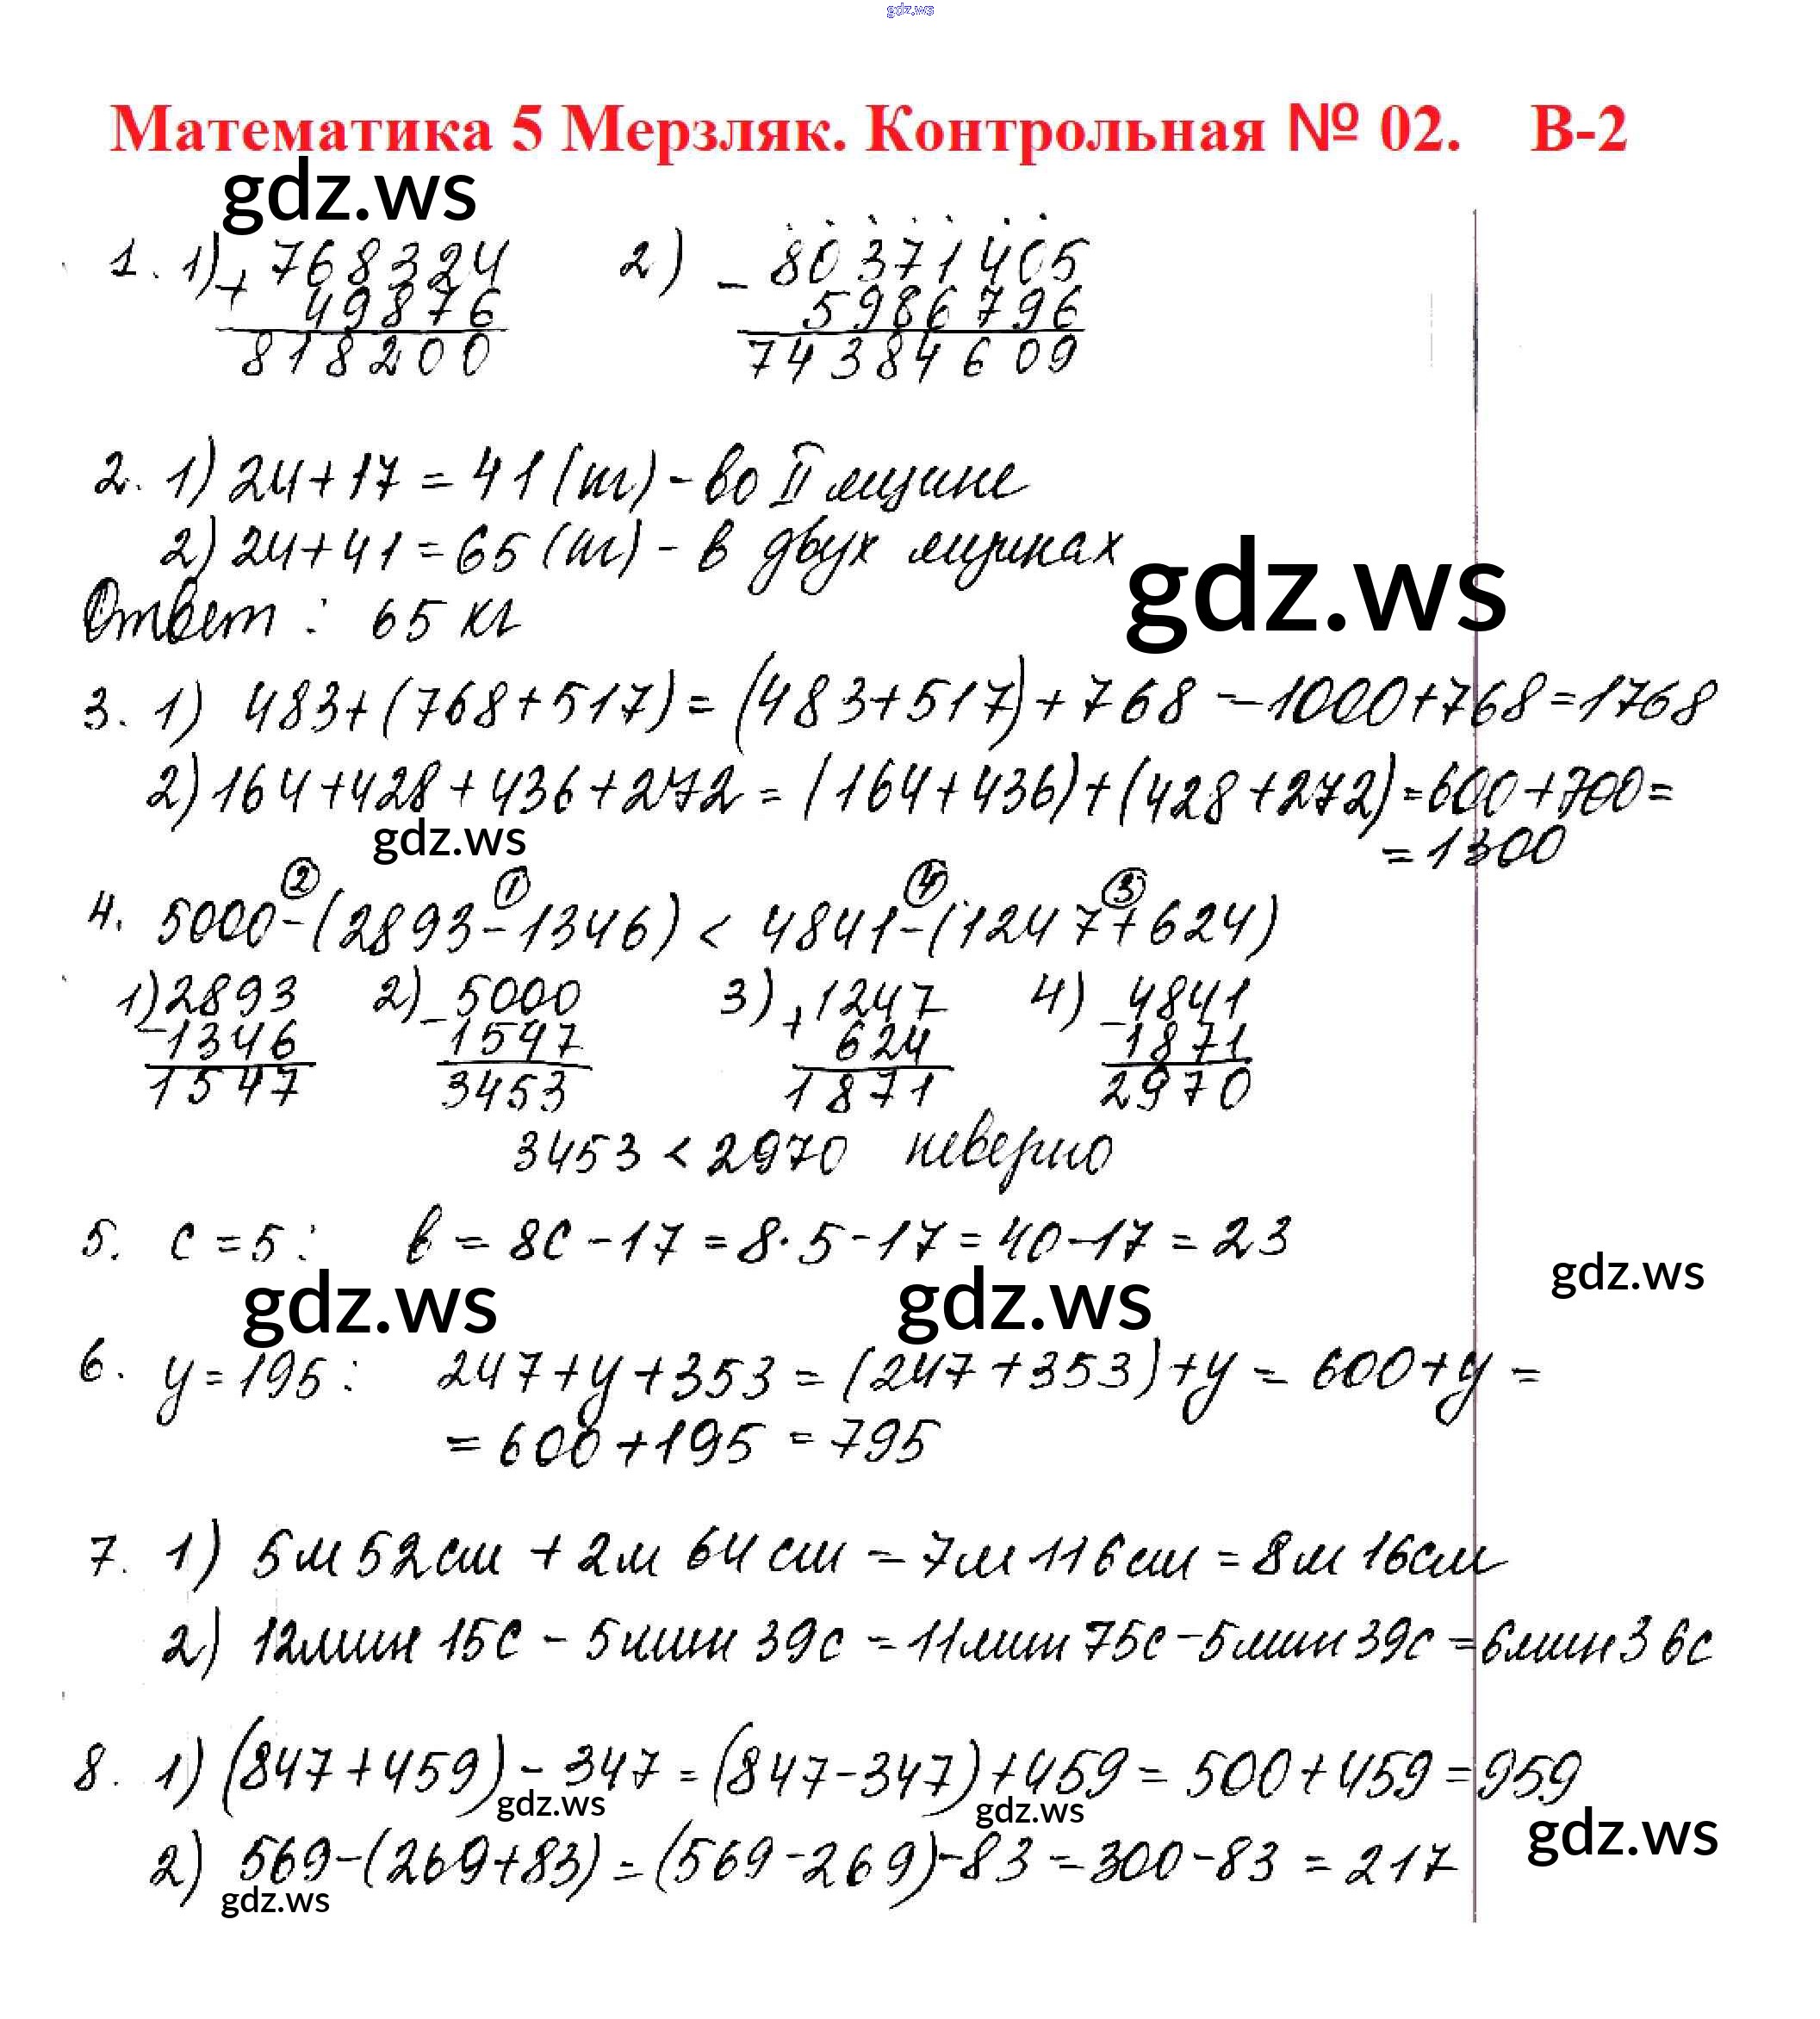 gdz.ws
Математика 5 Мерзляк. Контрольная № 02. В-2
gdz.ws
1. 1) + 768324 2) - 80371405
49876 5986796
818200 74384609
2. 1) 24+17 = 41 (кг) - во II ящике
2) 24+41 = 65 (кг) - в двух ящиках
gdz.ws
Ответ : 65 кг
3. 1) 483+(768+517) = (483+517)+768 = 1000+768=1768
2) 164+428+436+272 = (164+436)+(428+272)=600+700=
gdz.ws
=1300
② ① ④ ③
4. 5000-(2893-1346) < 4841-(1247+624)
1) 2893 2) - 5000 3) + 1247 4) - 4841
- 1346 1547 624 1871
1547 3453 1871 2970
3453 < 2970 неверно
5. c = 5 : b = 8c - 17 = 8·5 - 17 = 40-17 = 23
gdz.ws
gdz.ws gdz.ws
6. y = 195 : 247+y+353 = (247+353)+y = 600+y =
= 600+195 = 795
7. 1) 5м 52см + 2м 64см = 7м 116см = 8м 16см
2) 12мин 15с - 5мин 39с = 11мин 75с - 5мин 39с = 6мин 36с
8. 1) (847+459) - 347 = (847-347)+459 = 500+459 = 959
gdz.ws gdz.ws
gdz.ws
2) 569-(269+83) = (569-269)-83 = 300-83 = 217
gdz.ws